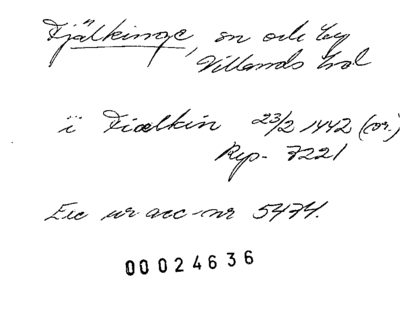 Fjälkinge, sn och by
Villands hd
i Fiælkin 23/2 1442 (or.)
Rep. 7221
Exc ur acc-nr 5474.
00024636